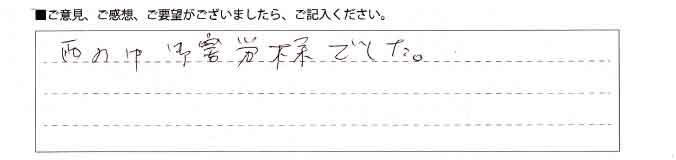 ■ご意見、ご感想、ご要望がございましたら、ご記入ください。
雨の中御苦労様でした。